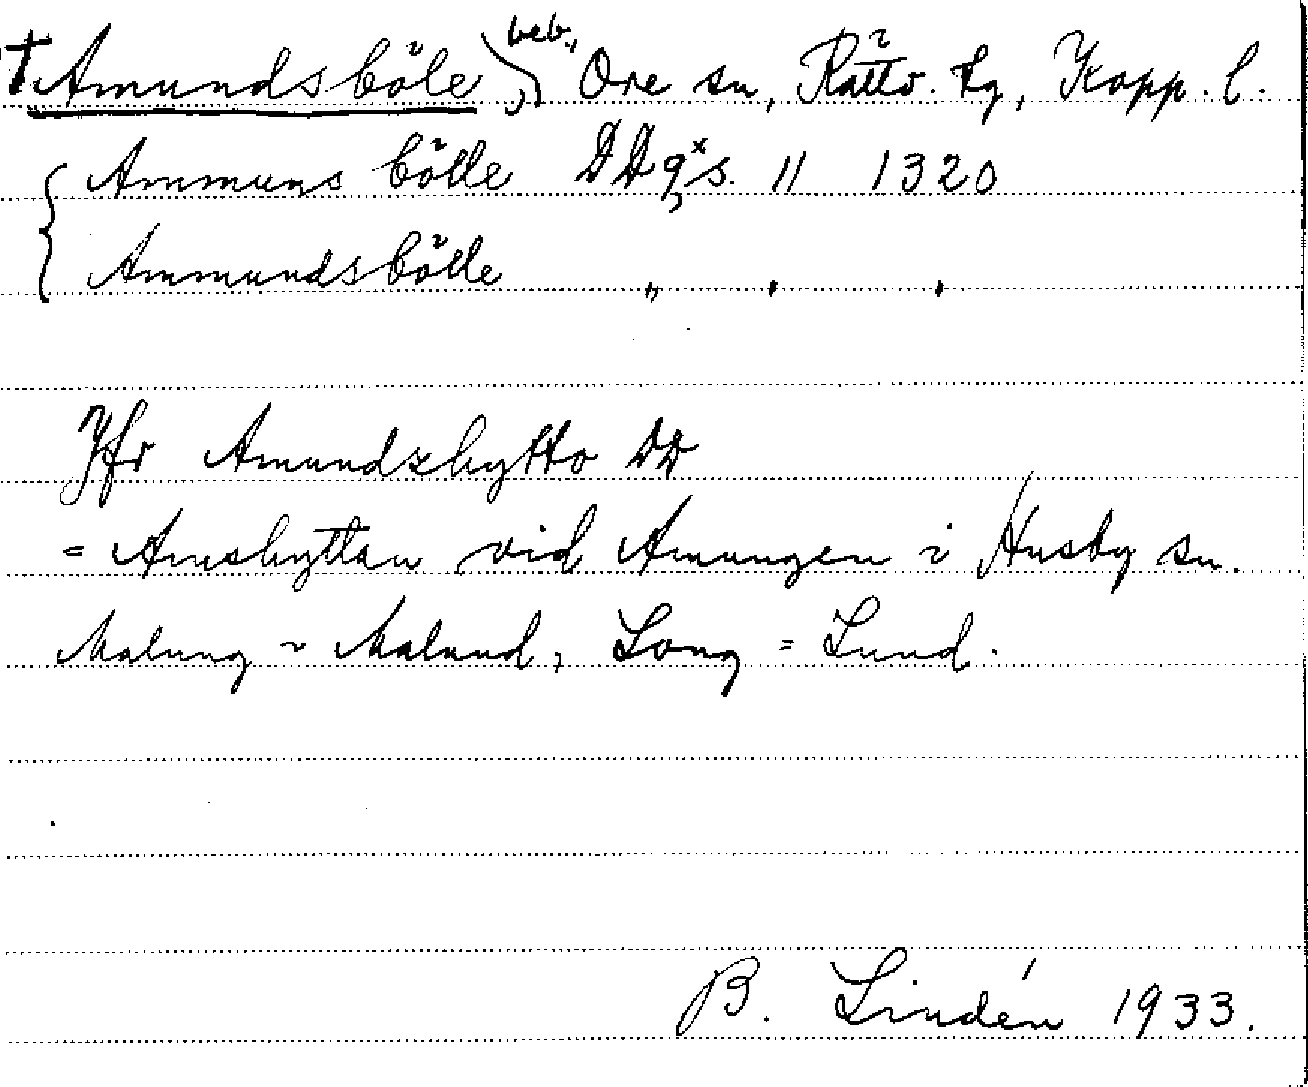 †Amundsböle, beb., Ore sn, Rättv. tg, Kopp. l.
Ammuns bölle DD 9 s. 11 1320
Ammundsbölle „ , ,
Jfr Amundzhytto DD
= Amshyttan vid Amungen i Husby sn.
Malung ~ Malund, Long = Lund.
B. Lindén 1933.